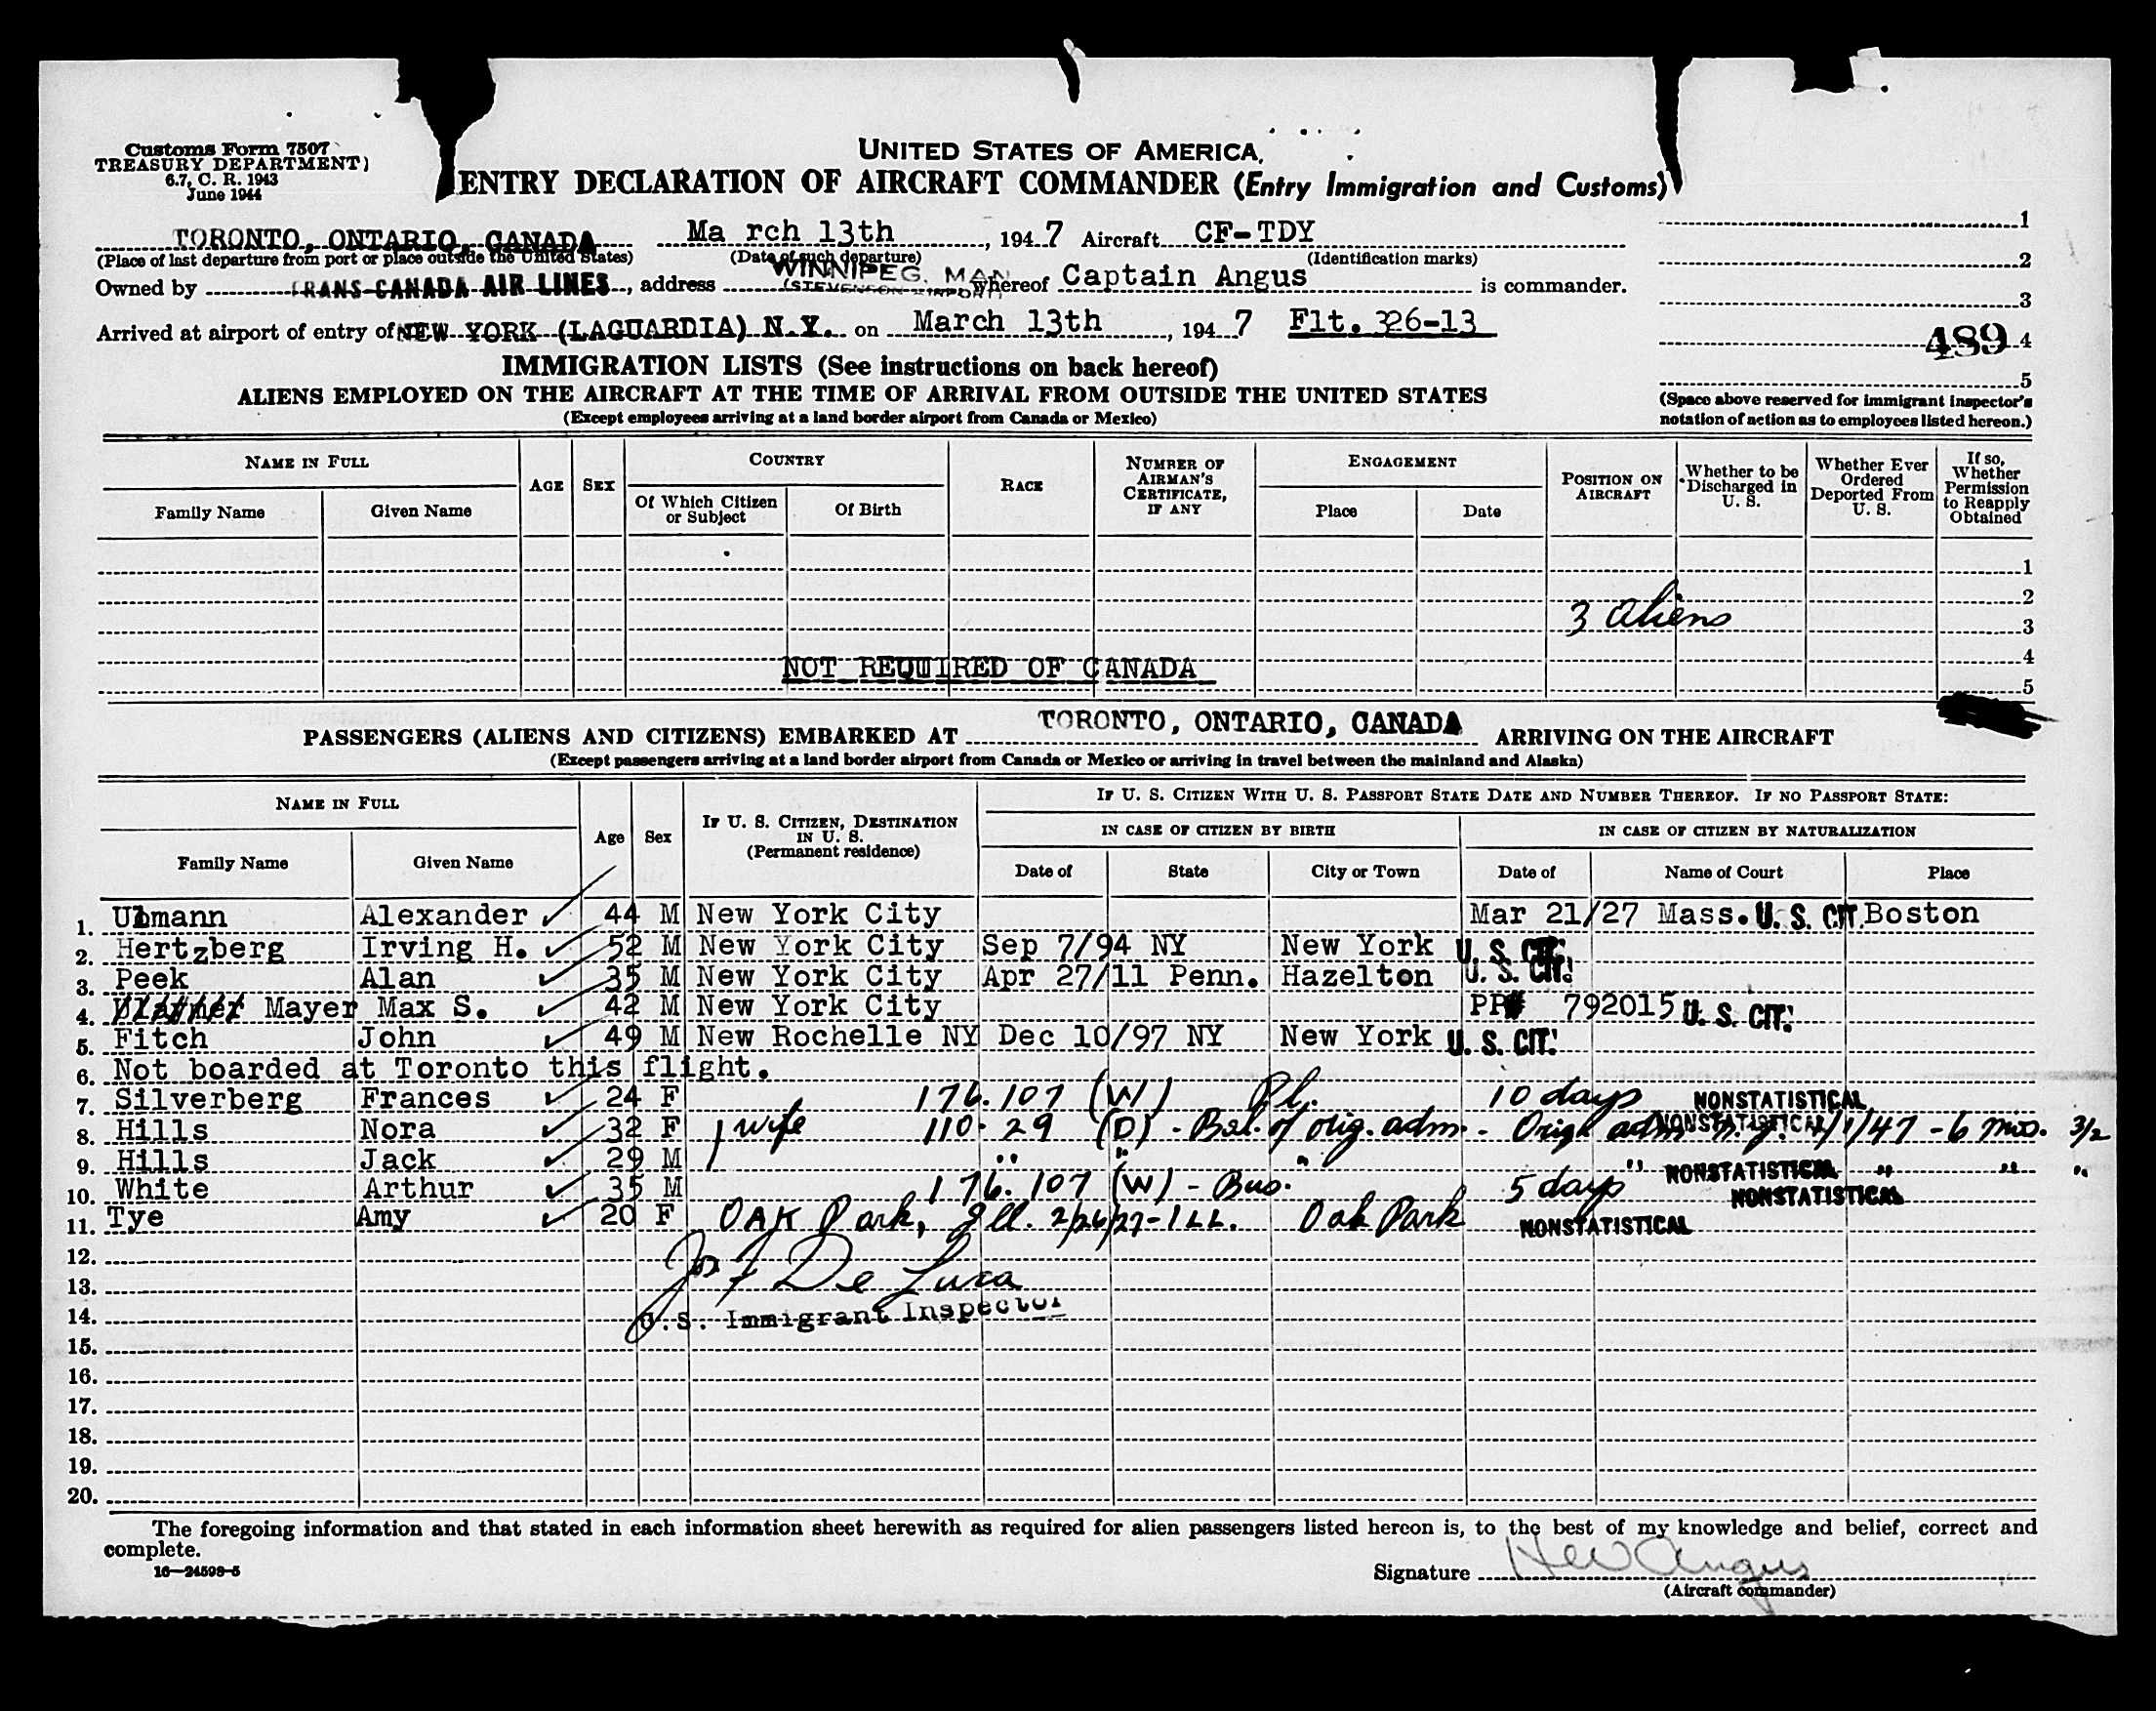 Customs Form 7507
TREASURY DEPARTMENT
6.7, C. R. 1943
June 1944
UNITED STATES OF AMERICA
ENTRY DECLARATION OF AIRCRAFT COMMANDER (Entry Immigration and Customs)
TORONTO, ONTARIO, CANADA March 13th, 1947 Aircraft CF-TDY
(Place of last departure from port or place outside the United States) (Date of such departure) (Identification marks)
Owned by TRANS-CANADA AIR LINES, address WINNIPEG, MAN (STEVENSON AIRPORT) whereof Captain Angus is commander.
Arrived at airport of entry of NEW YORK (LAGUARDIA) N.Y. on March 13th, 1947 Flt. 326-13
1
2
3
489 4
5
(Space above reserved for immigrant inspector's notation of action as to employees listed hereon.)
IMMIGRATION LISTS (See instructions on back hereof)
ALIENS EMPLOYED ON THE AIRCRAFT AT THE TIME OF ARRIVAL FROM OUTSIDE THE UNITED STATES
(Except employees arriving at a land border airport from Canada or Mexico)
NAME IN FULL AGE SEX COUNTRY RACE NUMBER OF AIRMAN'S CERTIFICATE, IF ANY ENGAGEMENT POSITION ON AIRCRAFT Whether to be Discharged in U. S. Whether Ever Ordered Deported From U. S. If so, Whether Permission to Reapply Obtained
Family Name Given Name Of Which Citizen or Subject Of Birth Place Date
1
2
3 aliens 3
4
NOT REQUIRED OF CANADA
5
PASSENGERS (ALIENS AND CITIZENS) EMBARKED AT TORONTO, ONTARIO, CANADA ARRIVING ON THE AIRCRAFT
(Except passengers arriving at a land border airport from Canada or Mexico or arriving in travel between the mainland and Alaska)
NAME IN FULL Age Sex IF U. S. CITIZEN, DESTINATION IN U. S. (Permanent residence) IF U. S. CITIZEN WITH U. S. PASSPORT STATE DATE AND NUMBER THEREOF. IF NO PASSPORT STATE:
IN CASE OF CITIZEN BY BIRTH IN CASE OF CITIZEN BY NATURALIZATION
Family Name Given Name Date of State City or Town Date of Name of Court Place
1. Ulmann Alexander 44 M New York City Mar 21/27 Mass. U. S. CIT. Boston
2. Hertzberg Irving H. 52 M New York City Sep 7/94 NY New York U. S. CIT.
3. Peek Alan 35 M New York City Apr 27/11 Penn. Hazelton U. S. CIT.
4. Mayer Max S. 42 M New York City PP# 792015 U. S. CIT.
5. Fitch John 49 M New Rochelle NY Dec 10/97 NY New York U. S. CIT.
6. Not boarded at Toronto this flight.
7. Silverberg Frances 24 F 176.107 (W) Pl. 10 days NONSTATISTICAL
8. Hills Nora 32 F wife 110.29 (D) - Bal. of orig. adm. - Orig adm N.Y. 1/47 - 6 mos. 3/2 NONSTATISTICAL
9. Hills Jack 29 M " " " " NONSTATISTICAL " " "
10. White Arthur 35 M 176.107 (W) - Bus. 5 days NONSTATISTICAL
11. Tye Amy 20 F OAK Park, Ill. 2/26/27 - ILL. Oak Park NONSTATISTICAL
12.
13. Jos F De Luca
14. U.S. Immigrant Inspector
15.
16.
17.
18.
19.
20.
The foregoing information and that stated in each information sheet herewith as required for alien passengers listed hereon is, to the best of my knowledge and belief, correct and
complete.
16—24598-5
Signature Angus
(Aircraft commander)